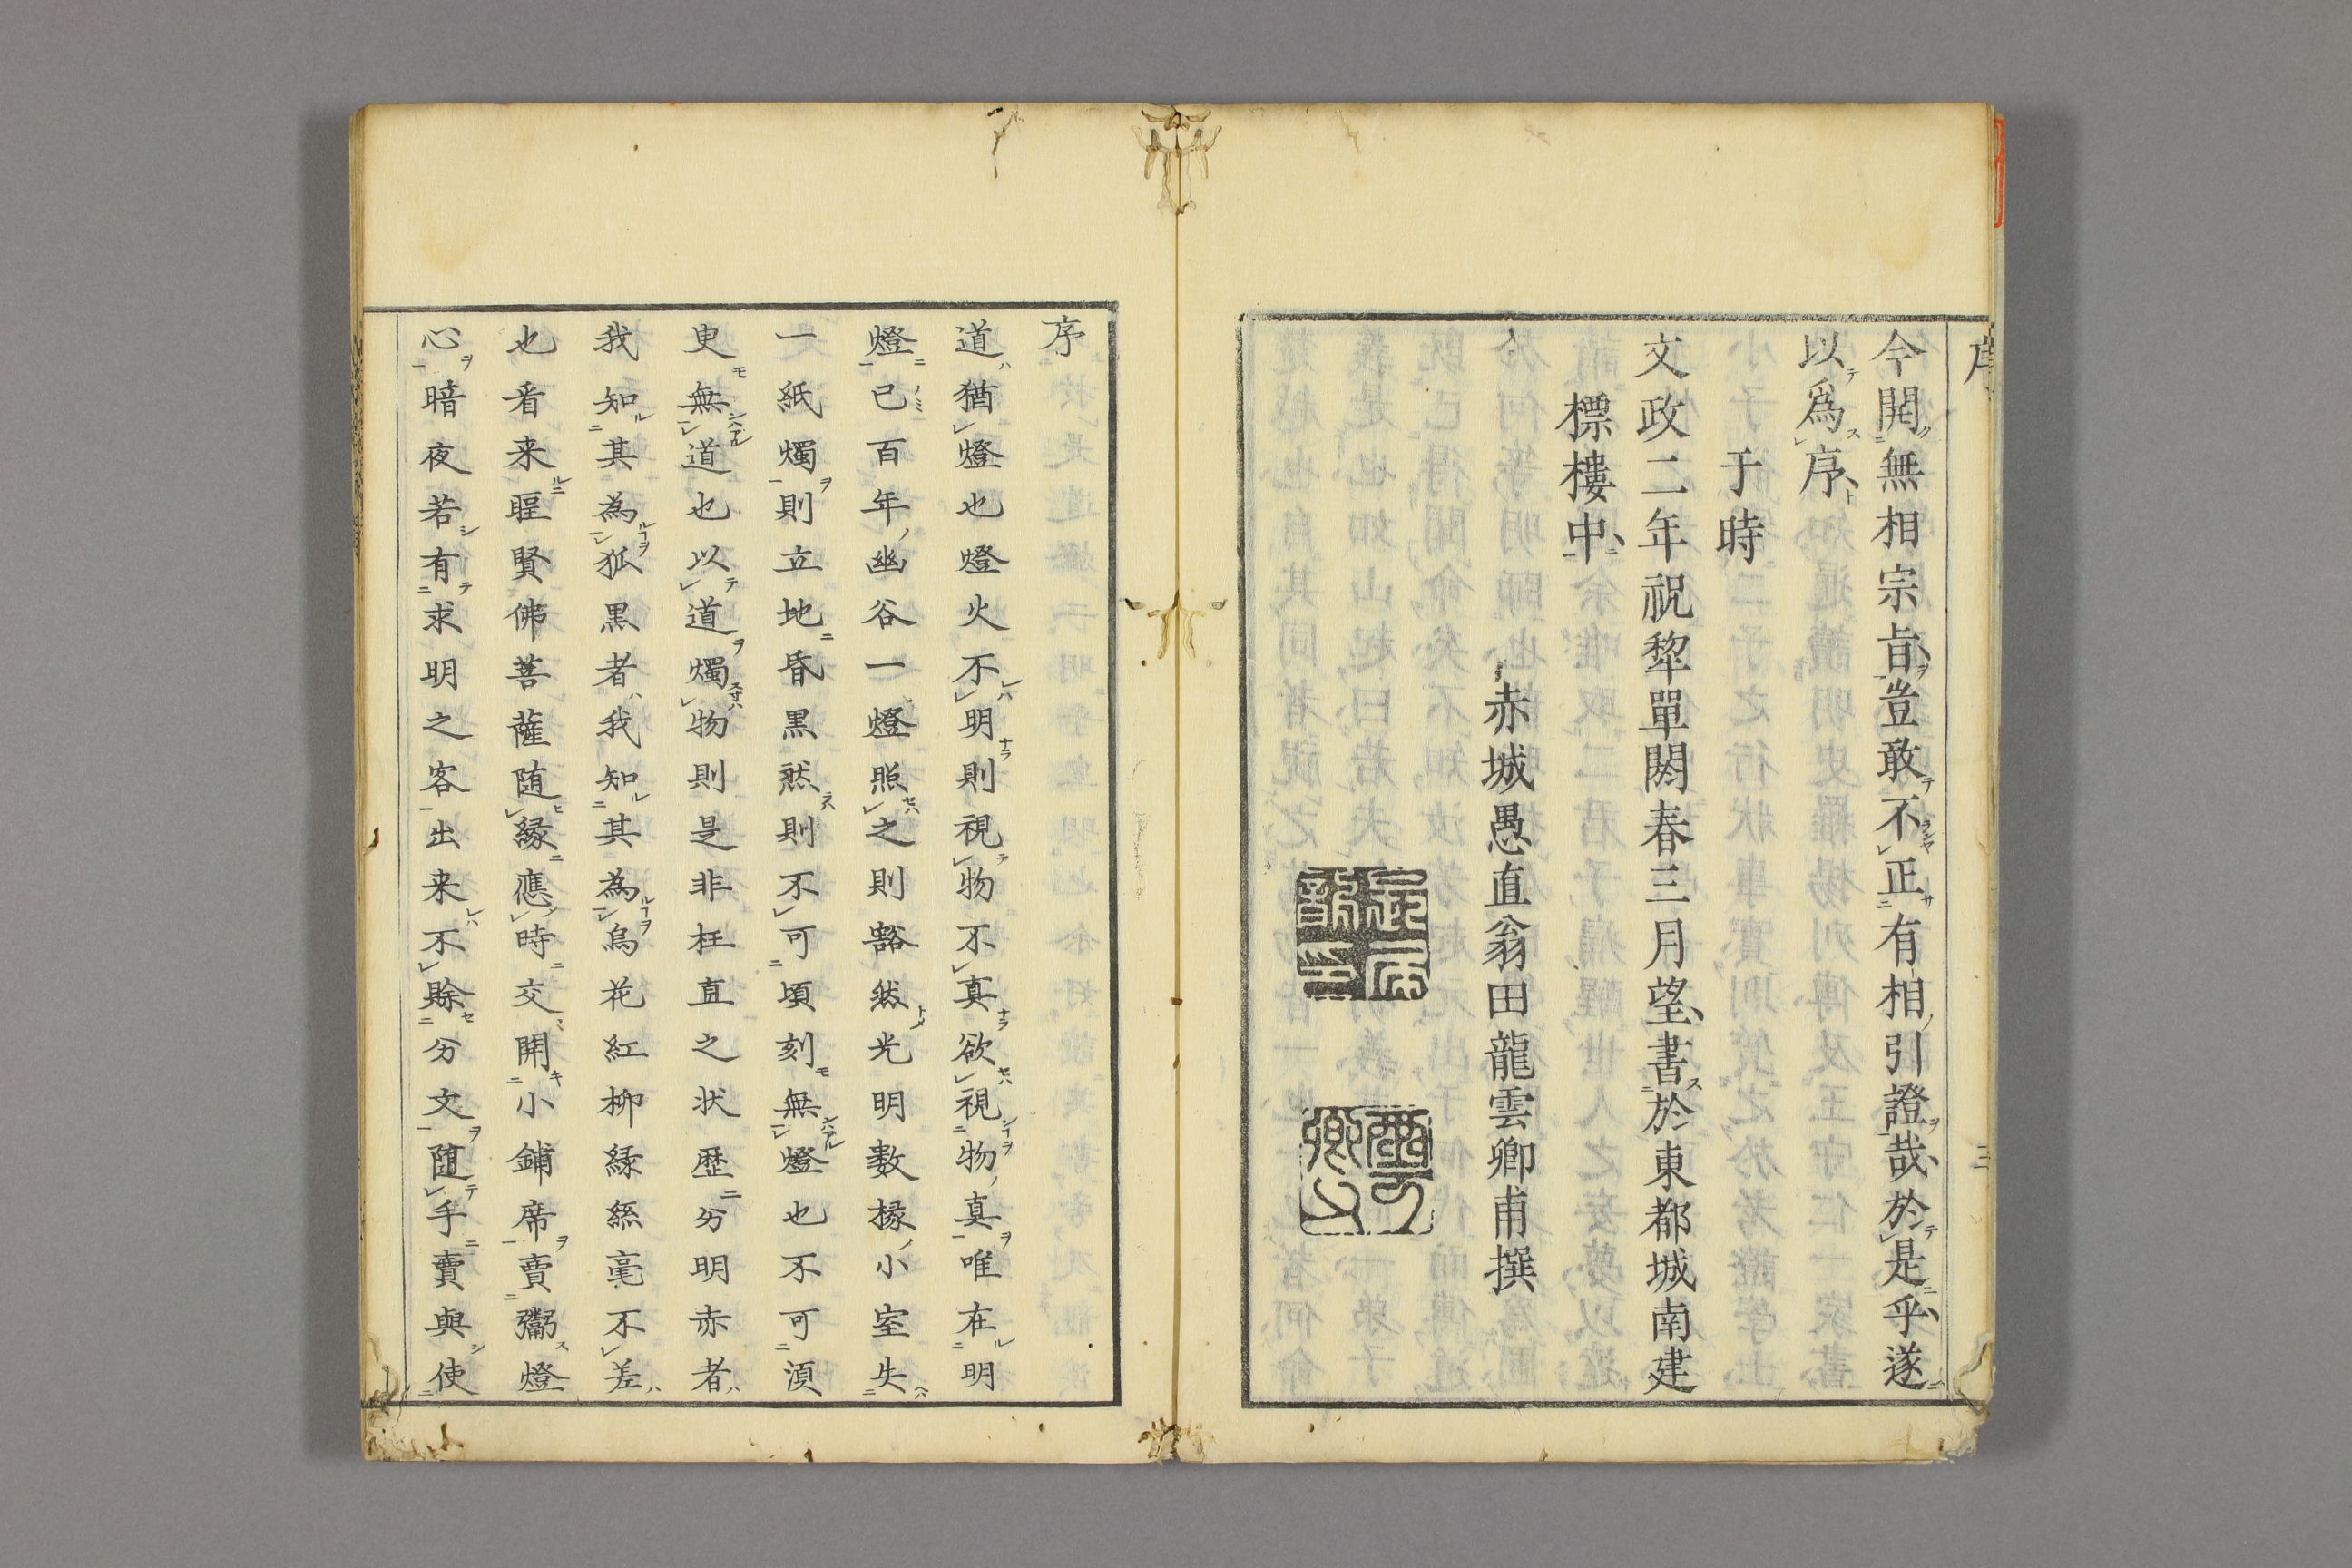 今開無相宗旨豈敢不正有相引證哉於是乎遂
以爲序
于時
文政二年祝犂單閼春三月望書於東都城南建
標樓中
赤城愚直翁田龍雲卿甫撰
序
道猶燈也燈火不明則視物不真欲視物真唯在明
燈已百年幽谷一燈照之則豁然光明數椽小室失
一紙燭則立地昏黒然則不可頃刻無燈也不可須
更無道也以道燭物則是非枉直之状歴分明赤者
我知其為狐黒者我知其為烏花紅柳緑絲毫不差
也看来聖賢佛菩薩随縁應時交開小鋪席賣彌燈
心暗夜若有求明之客出来不賖分文随手賣與使